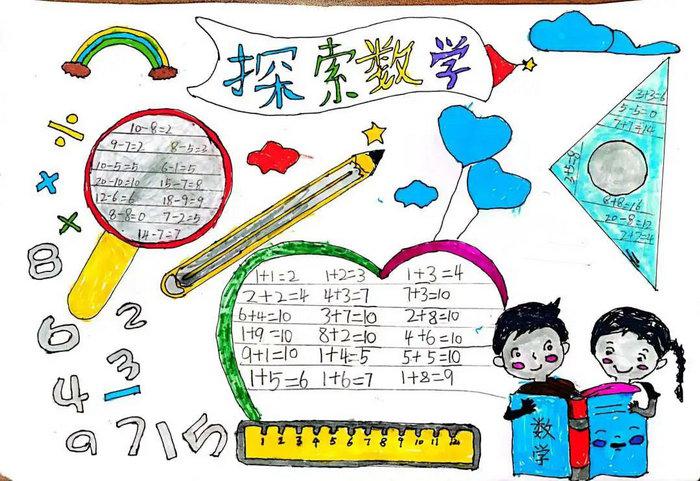 探索数学
10-8=2
9-7=2 8-5=3
10-5=5 6-1=5
20-10=10 15-7=8
12-6=6 18-9=9
8-8=0 7-2=5
14-7=7
3+3=6
5-5=0
7+7=14
8+8=16
20-8=12
2+2=4
÷
×
×
8
6
2
3
4
9 7 1 5
1+1=2 1+2=3 1+3=4
2+2=4 4+3=7 7+3=10
6+4=10 3+7=10 2+8=10
1+9=10 8+2=10 4+6=10
9+1=10 1+4=5 5+5=10
1+5=6 1+6=7 1+8=9
1 2 3 4 5 6 7 8 9 10 11 12
数学